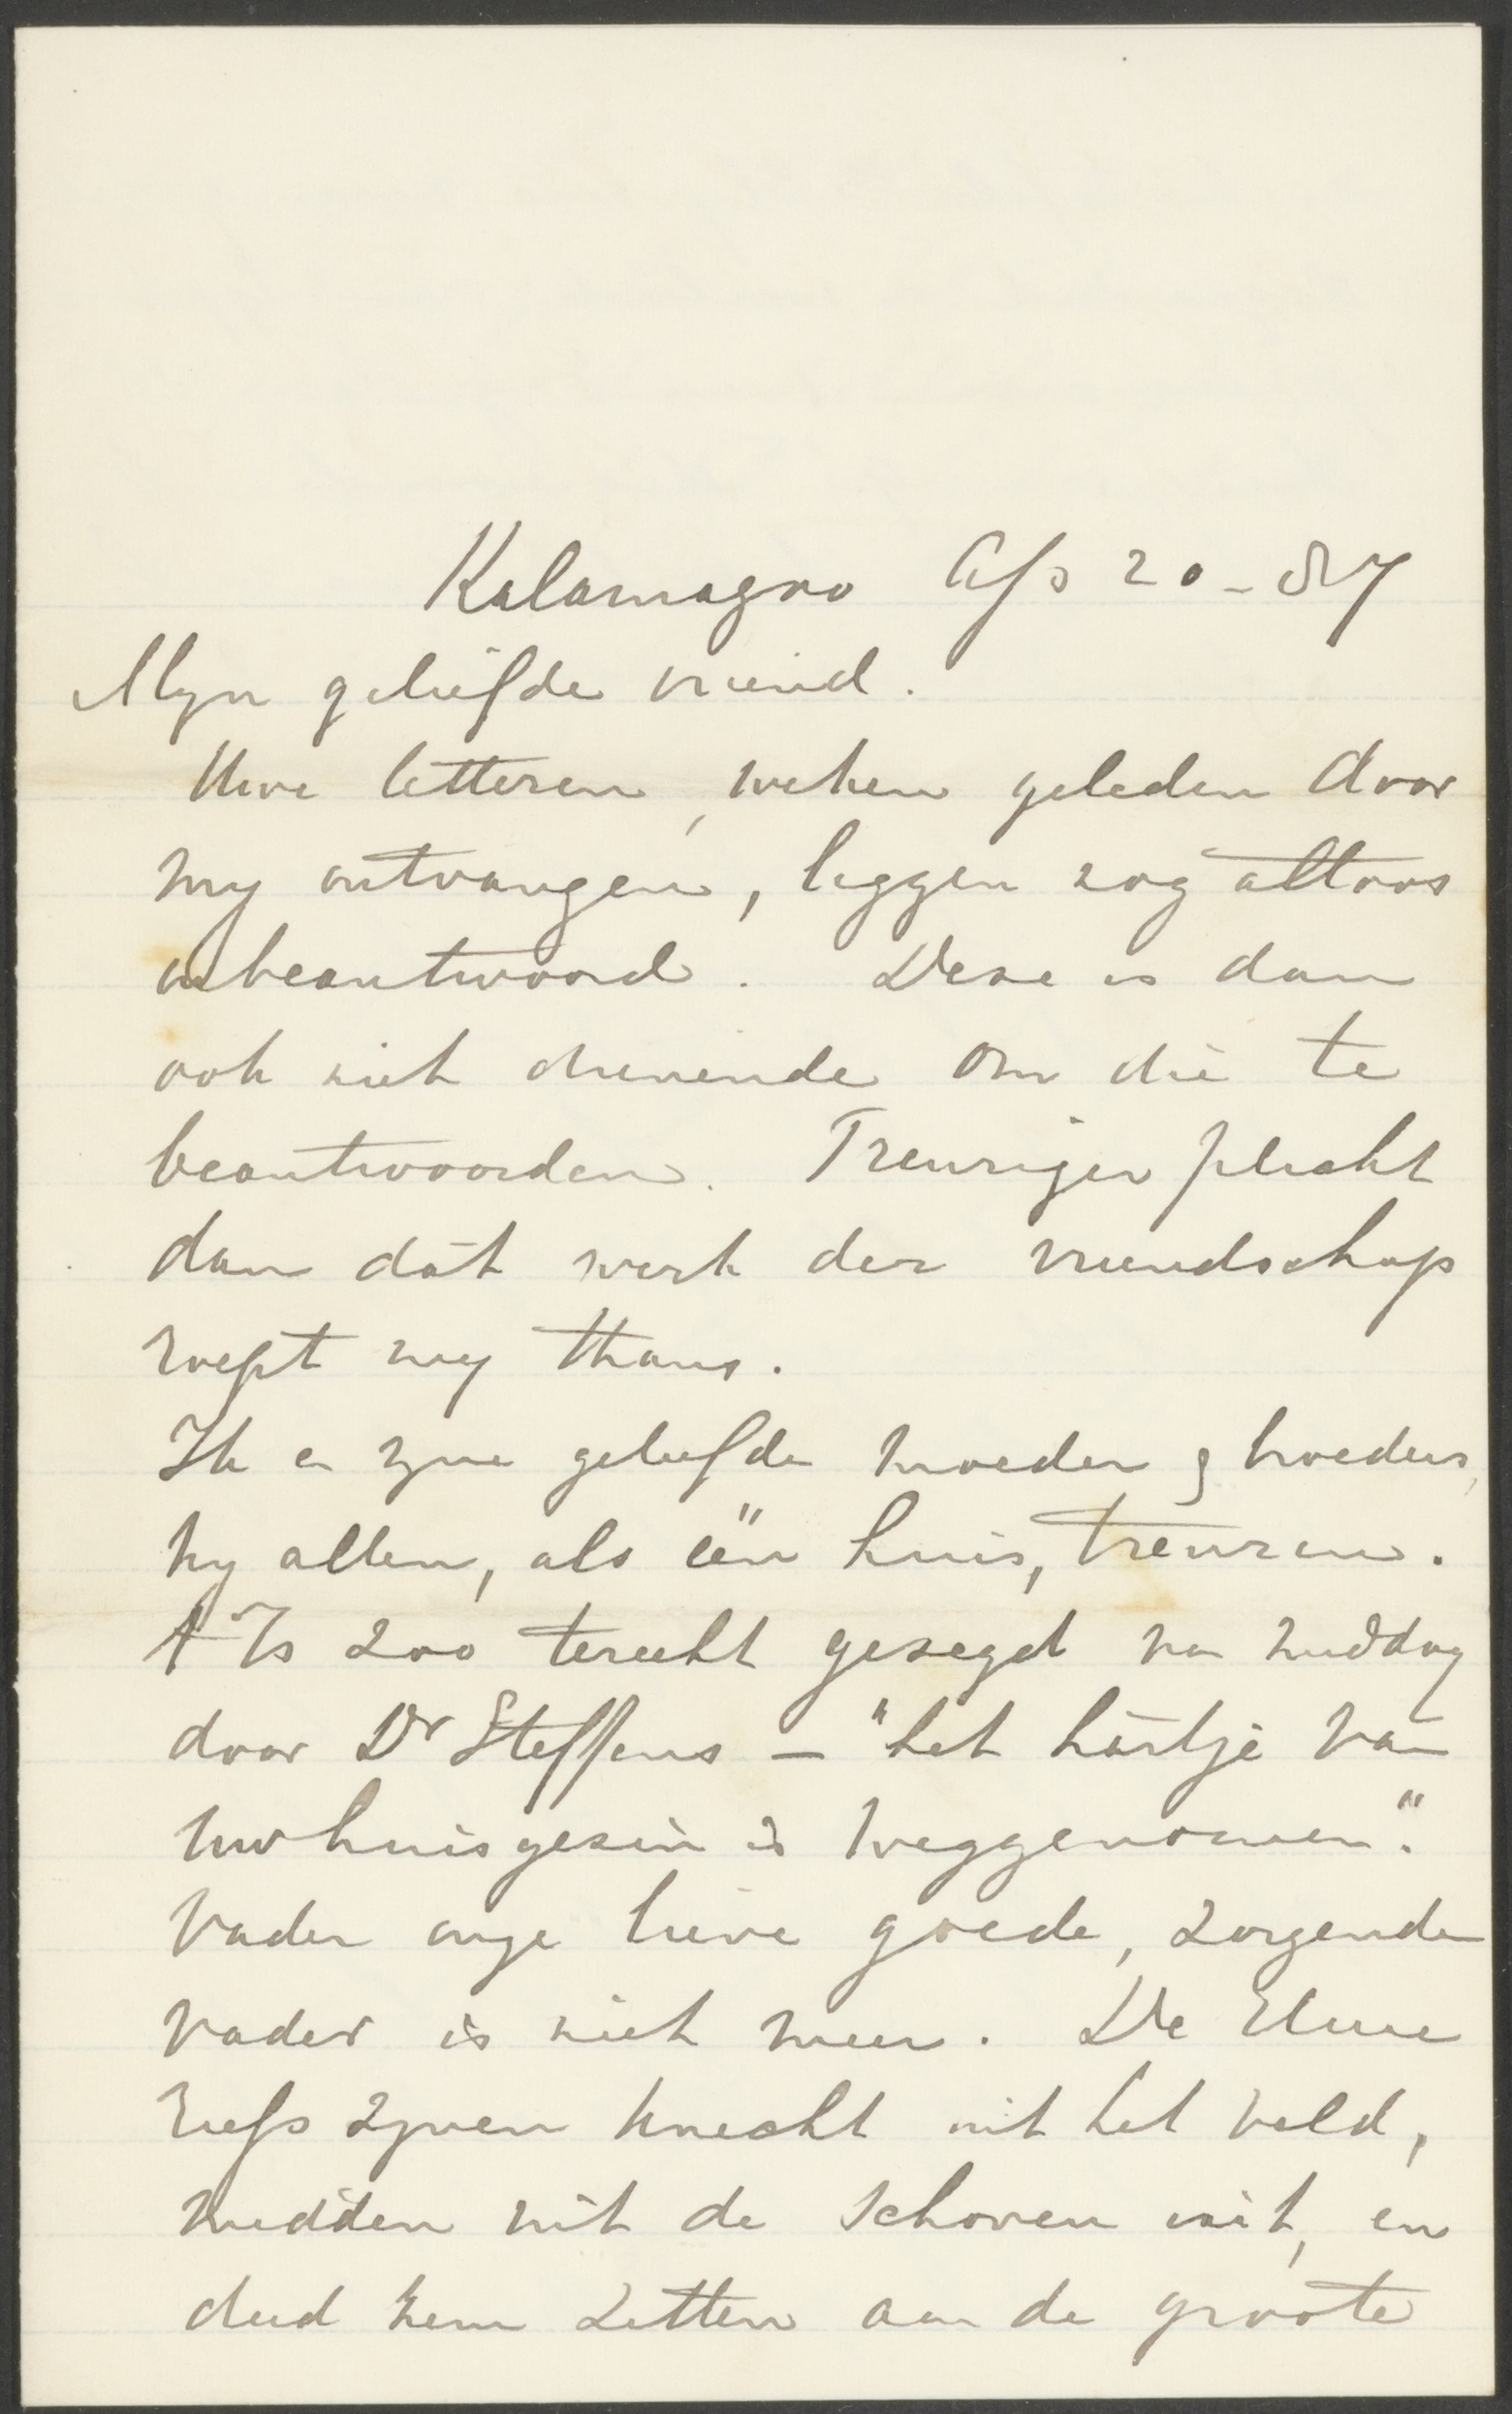 Kalamazoo Ap 20-87
Myn geliefde vriend.
Uwe letteren, weken geleden door
my ontvangen, liggen nog altoos
onbeantwoord. Deze is dan
ook niet dienende om die te
beantwoorden. Treuriger plicht
dan dát werk der vriendschap
roept my thans.
Ik en myne geliefde moeder & broeders,
wy allen, als één huis, treuren.
't Is zoo terecht gezegd van middag
door Dr Steffens — "het hartje van
uw huisgezin is weggenomen."
Vader onze lieve goede, zorgende
vader is niet meer. De Heere
riep zynen knecht uit het veld,
midden uit de schoven uit, en
deed hem zitten aan de groote